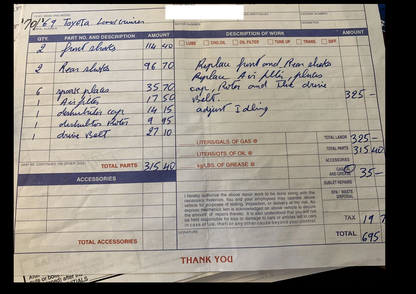 '70/'69 Toyota Land Cruiser
QTY. PART NO. AND DESCRIPTION AMOUNT DESCRIPTION OF WORK AMOUNT
LUBE CHG.OIL OIL FILTER TUNE UP TRANS. DIFF.
2 front shocks 114 40
2 Rear shocks 96 70
6 spark plugs 35 70
1 Air filter 17 50
1 distributor cap 14 15
1 distributor Rotor 9 95
1 drive Belt 27 10
Replace front and Rear shocks
Replace Air filter, plugs
cap, Rotor and The drive
Belt. 325 -
adjust Idling
LITERS/GALS. OF GAS @
LITERS/QTS. OF OIL @
kg/LBS. OF GREASE @
TOTAL PARTS 315 40
ACCESSORIES
TOTAL ACCESSORIES
TOTAL LABOR 325 -
TOTAL PARTS 315 40
ACCESSORIES
AND GREASE 35 -
SUBLET REPAIRS
EPA / WASTE
DISPOSAL
TAX 19
TOTAL 695
I hereby authorize the above repair work to be done along with the
necessary materials. You and your employees may operate above
vehicle for purposes of testing, inspection, or delivery at my risk. An
express mechanics lien is acknowledged on above vehicle to secure
the amount of repairs thereto. It is also understood that you will not
be held responsible for loss or damage to cars or articles left in cars
in case of fire, theft or any other cause beyond your control.
SIGNATURE
THANK YOU